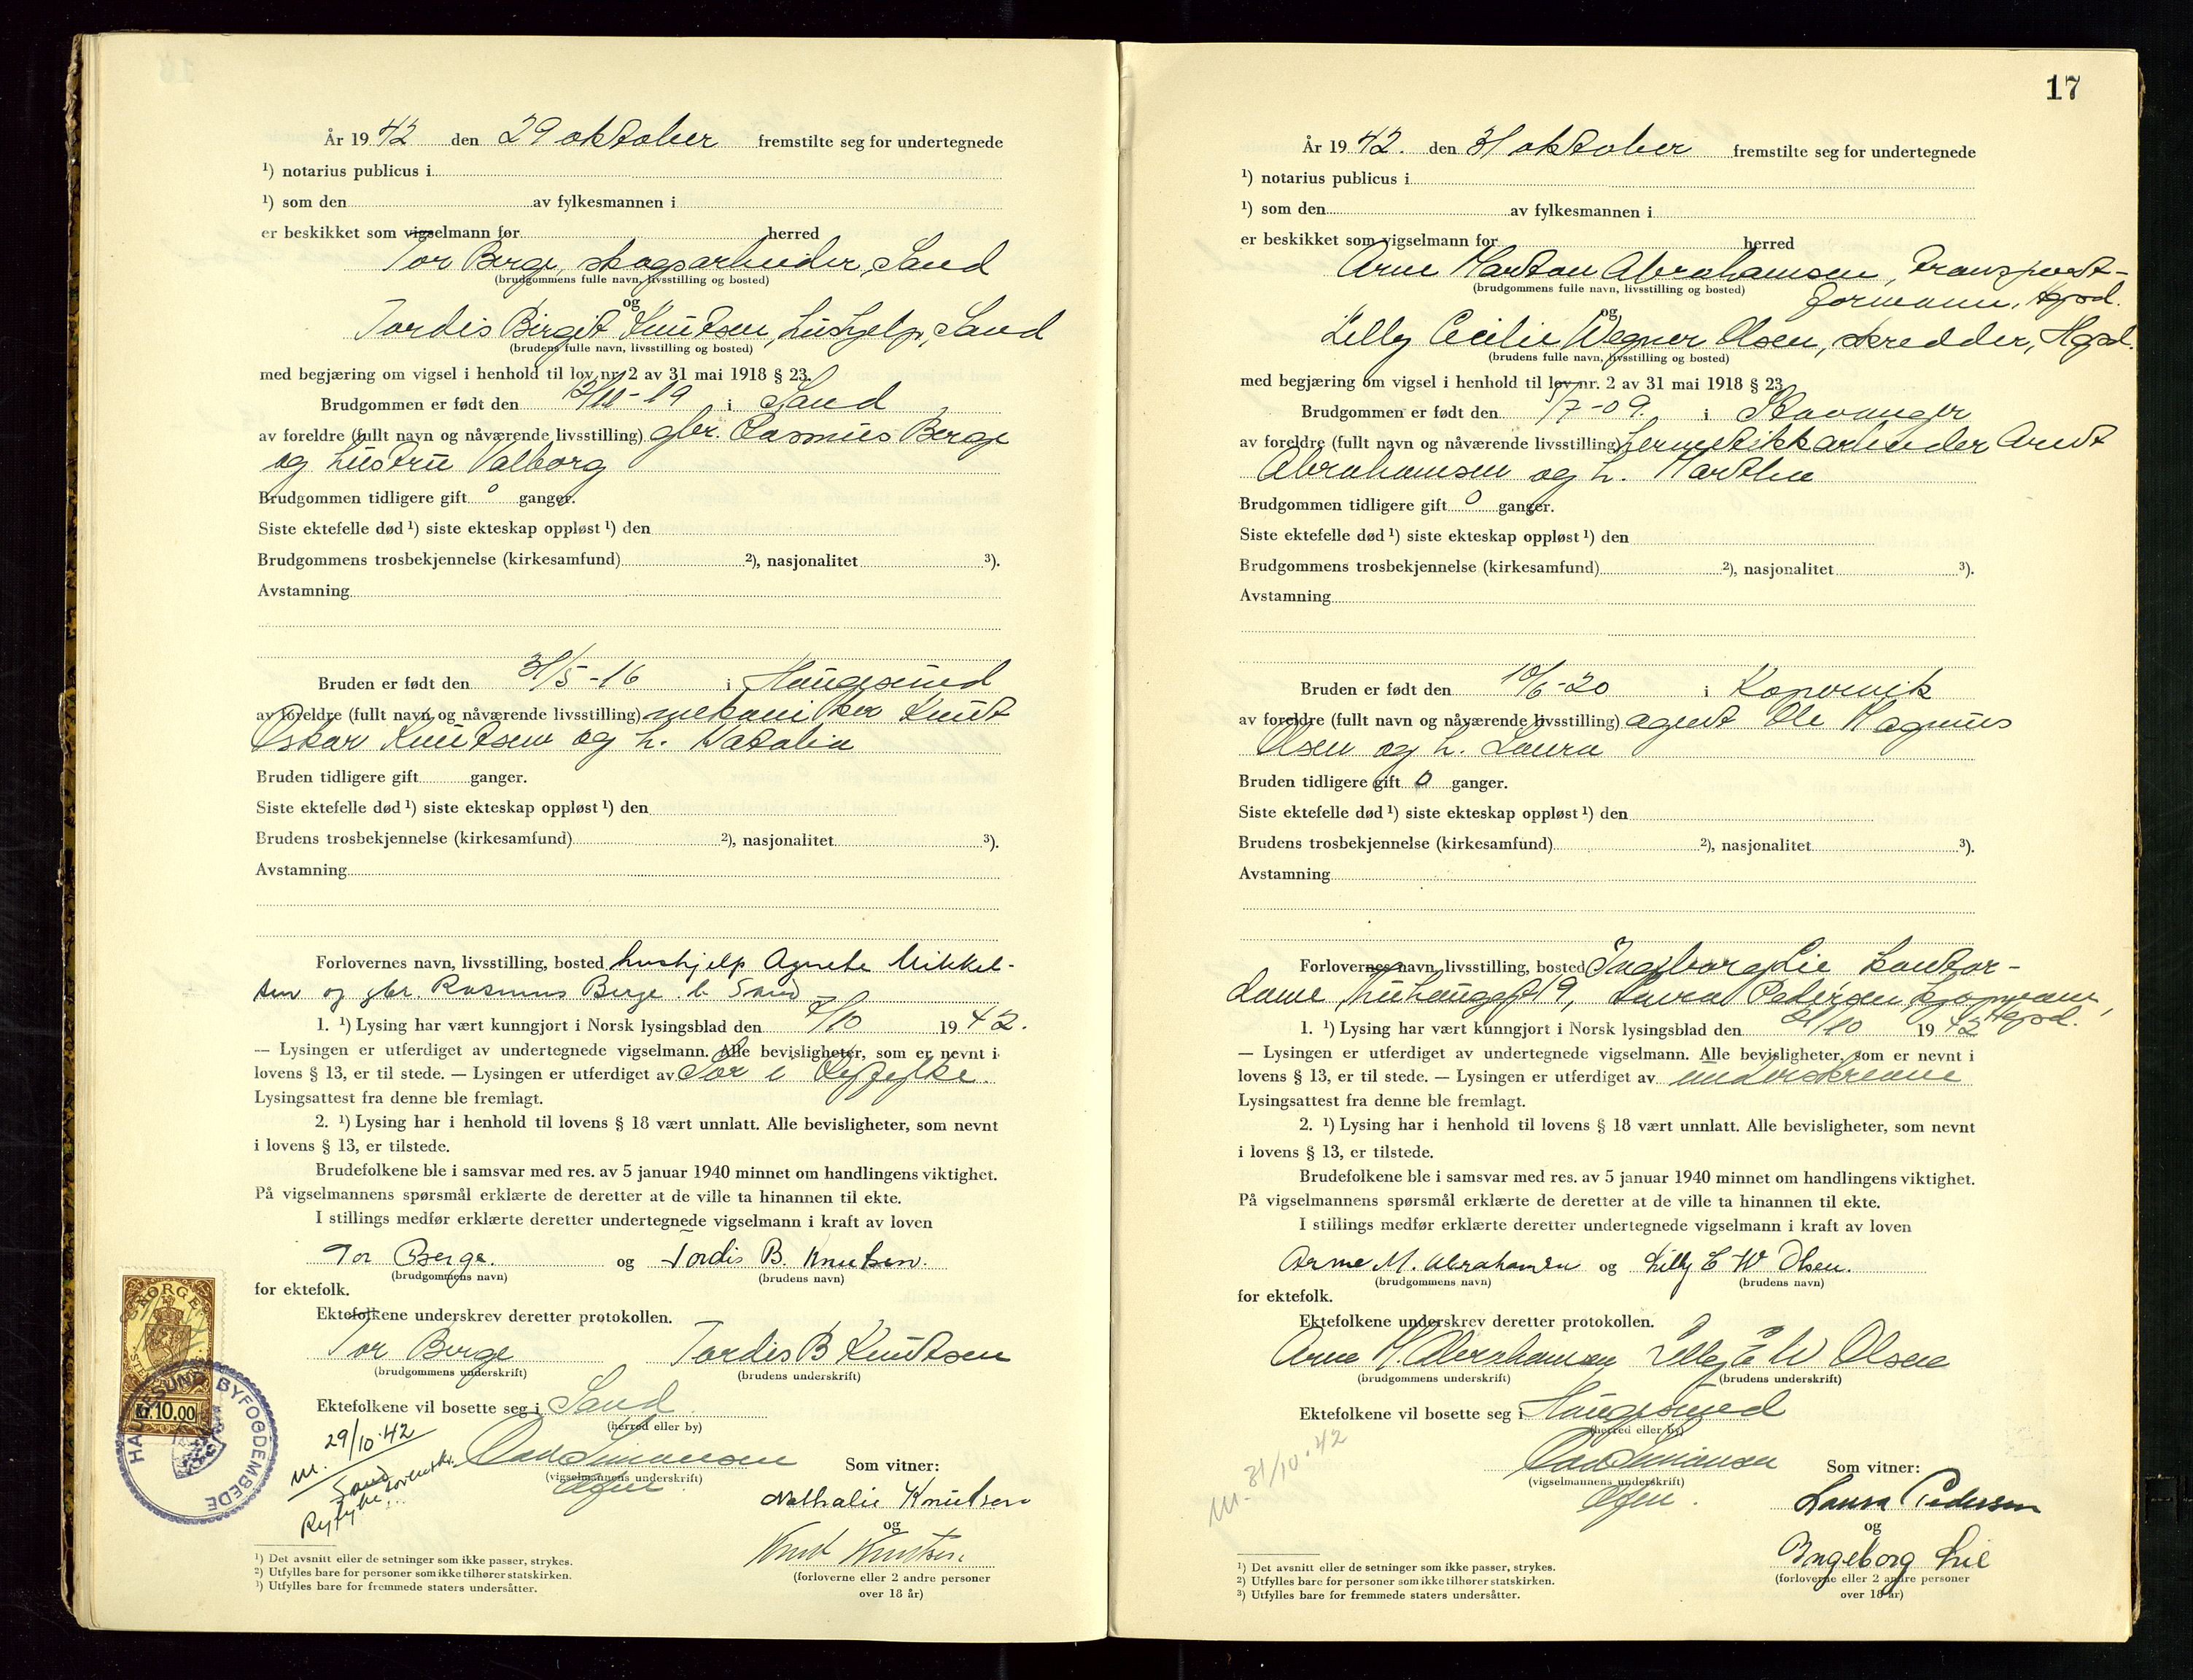 År 19 42 den 29 oktober fremstilte seg for undertegnede
¹) notarius publicus i
¹) som den av fylkesmannen i
er beskikket som vigselmann for herred
Tor Berge, skogsarbeider, Sand
(brudgommens fulle navn, livsstilling og bosted)
og
Tordis Birgit Knutsen, hushjelp, Sand
(brudens fulle navn, livsstilling og bosted)
med begjæring om vigsel i henhold til lov nr. 2 av 31 mai 1918 § 23.
Brudgommen er født den -19 i Sand
av foreldre (fullt navn og nåværende livsstilling) gbr. Rasmus Berge
og hustru Valborg
Brudgommen tidligere gift 0 ganger.
Siste ektefelle død ¹) siste ekteskap oppløst ¹) den
Brudgommens trosbekjennelse (kirkesamfund) ²), nasjonalitet ³).
Avstamning
Bruden er født den 31/5-16 i Haugesund
av foreldre (fullt navn og nåværende livsstilling) mekaniker Knut
Oskar Knutsen og h. Natalia
Bruden tidligere gift ganger.
Siste ektefelle død ¹) siste ekteskap oppløst ¹) den
Brudens trosbekjennelse (kirkesamfund) ²), nasjonalitet ³).
Avstamning
Forlovernes navn, livsstilling, bosted hushjelp Agnete Mikkel-
sen og gbr. Rasmus Berge b. Sand
1. ¹) Lysing har vært kunngjort i Norsk lysingsblad den /10 19 42.
— Lysingen er utferdiget av undertegnede vigselmann. Alle bevisligheter, som er nevnt i
lovens § 13, er til stede. — Lysingen er utferdiget av Sor i Ryfylke.
Lysingsattest fra denne ble fremlagt.
2. ¹) Lysing har i henhold til lovens § 18 vært unnlatt. Alle bevisligheter, som nevnt
i lovens § 13, er tilstede.
Brudefolkene ble i samsvar med res. av 5 januar 1940 minnet om handlingens viktighet.
På vigselmannens spørsmål erklærte de deretter at de ville ta hinannen til ekte.
I stillings medfør erklærte deretter undertegnede vigselmann i kraft av loven
Tor Berge. og Tordis B. Knutsen.
(brudgommens navn) (brudens navn)
for ektefolk.
Ektefolkene underskrev deretter protokollen.
Tor Berge Tordis B Knutsen
(brudgommens underskrift) (brudens underskrift)
Ektefolkene vil bosette seg i Sand
(herred eller by)
(vigselmannens underskrift)
Som vitner:
Nathalie Knutsen
og
Knut Knutsen
(forloverne eller 2 andre personer
over 18 år)
m. 29/10.42
Sand
Ryfylke sorenskr.
NORGE
Kr. 10.00
HAUGESUND BYFOGDEMBEDE
¹) Det avsnitt eller de setninger som ikke passer, strykes.
²) Utfylles bare for personer som ikke tilhører statskirken.
³) Utfylles bare for fremmede staters undersåtter.
17
År 19 42. den 31 oktober fremstilte seg for undertegnede
¹) notarius publicus i
¹) som den av fylkesmannen i
er beskikket som vigselmann for herred
Arne Marton Abrahamsen, transport-
(brudgommens fulle navn, livsstilling og bosted)
formann, Hgsd.
og
Lilly Cecilie Wegner Olsen, skredder, Hgsd.
(brudens fulle navn, livsstilling og bosted)
med begjæring om vigsel i henhold til lov nr. 2 av 31 mai 1918 § 23
Brudgommen er født den 5/7-09. i Stavanger
av foreldre (fullt navn og nåværende livsstilling) hermetikkarbeider Arnt
Abrahamsen og h. Marthe
Brudgommen tidligere gift 0 ganger.
Siste ektefelle død ¹) siste ekteskap oppløst ¹) den
Brudgommens trosbekjennelse (kirkesamfund) ²), nasjonalitet ³).
Avstamning
Bruden er født den 10/6-20 i Kopervik
av foreldre (fullt navn og nåværende livsstilling) agent Ole Magnus
Olsen og h. Laura
Bruden tidligere gift 0 ganger.
Siste ektefelle død ¹) siste ekteskap oppløst ¹) den
Brudens trosbekjennelse (kirkesamfund) ²), nasjonalitet ³).
Avstamning
Forlovernes navn, livsstilling, bosted Ingeborg Lie kontor-
dame, 19, Laura Pedersen
Hgsd.
1. ¹) Lysing har vært kunngjort i Norsk lysingsblad den 21/10 19 42
— Lysingen er utferdiget av undertegnede vigselmann. Alle bevisligheter, som er nevnt i
lovens § 13, er til stede. — Lysingen er utferdiget av underskrevne
Lysingsattest fra denne ble fremlagt.
2. ¹) Lysing har i henhold til lovens § 18 vært unnlatt. Alle bevisligheter, som nevnt
i lovens § 13, er tilstede.
Brudefolkene ble i samsvar med res. av 5 januar 1940 minnet om handlingens viktighet.
På vigselmannens spørsmål erklærte de deretter at de ville ta hinannen til ekte.
I stillings medfør erklærte deretter undertegnede vigselmann i kraft av loven
Arne M. Abrahamsen og Lilly C W Olsen.
(brudgommens navn) (brudens navn)
for ektefolk.
Ektefolkene underskrev deretter protokollen.
Arne M. Abrahamsen Lilly C W Olsen
(brudgommens underskrift) (brudens underskrift)
Ektefolkene vil bosette seg i Haugesund
(herred eller by)
(vigselmannens underskrift)
Som vitner:
Laura Pedersen
og
Ingeborg Lie
(forloverne eller 2 andre personer
over 18 år)
m. 31/10.42
¹) Det avsnitt eller de setninger som ikke passer, strykes.
²) Utfylles bare for personer som ikke tilhører statskirken.
³) Utfylles bare for fremmede staters undersåtter.